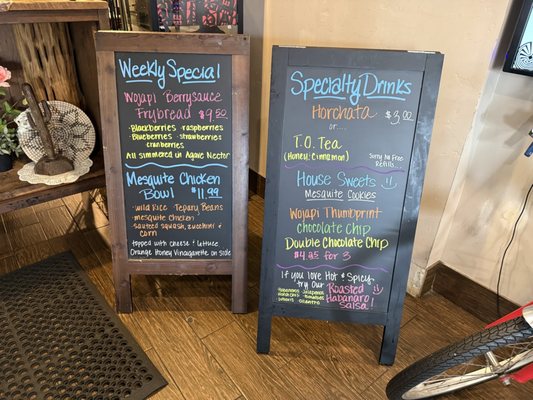 Weekly Special
Wojapi Berrysauce
Frybread $9.50
-Blackberries -raspberries
-Blueberries -strawberries
-cranberries
All simmered in Agave Nectar
Mesquite Chicken
Bowl $11.99
-wild Rice - Tepary Beans
-mesquite chicken
-sauteed squash, zucchini &
corn
topped with cheese & lettuce
Orange Honey Vinaigarette on side
Specialty Drinks
Horchata $3.00
or....
T.O. Tea
(Honey, Cinnamon)
Sorry No Free
Refills
House Sweets
Mesquite Cookies
Wojapi Thumbprint
chocolate Chip
Double Chocolate Chip
$4.25 for 3
If you love Hot & Spicy
try our Roasted
Habanero
Salsa!